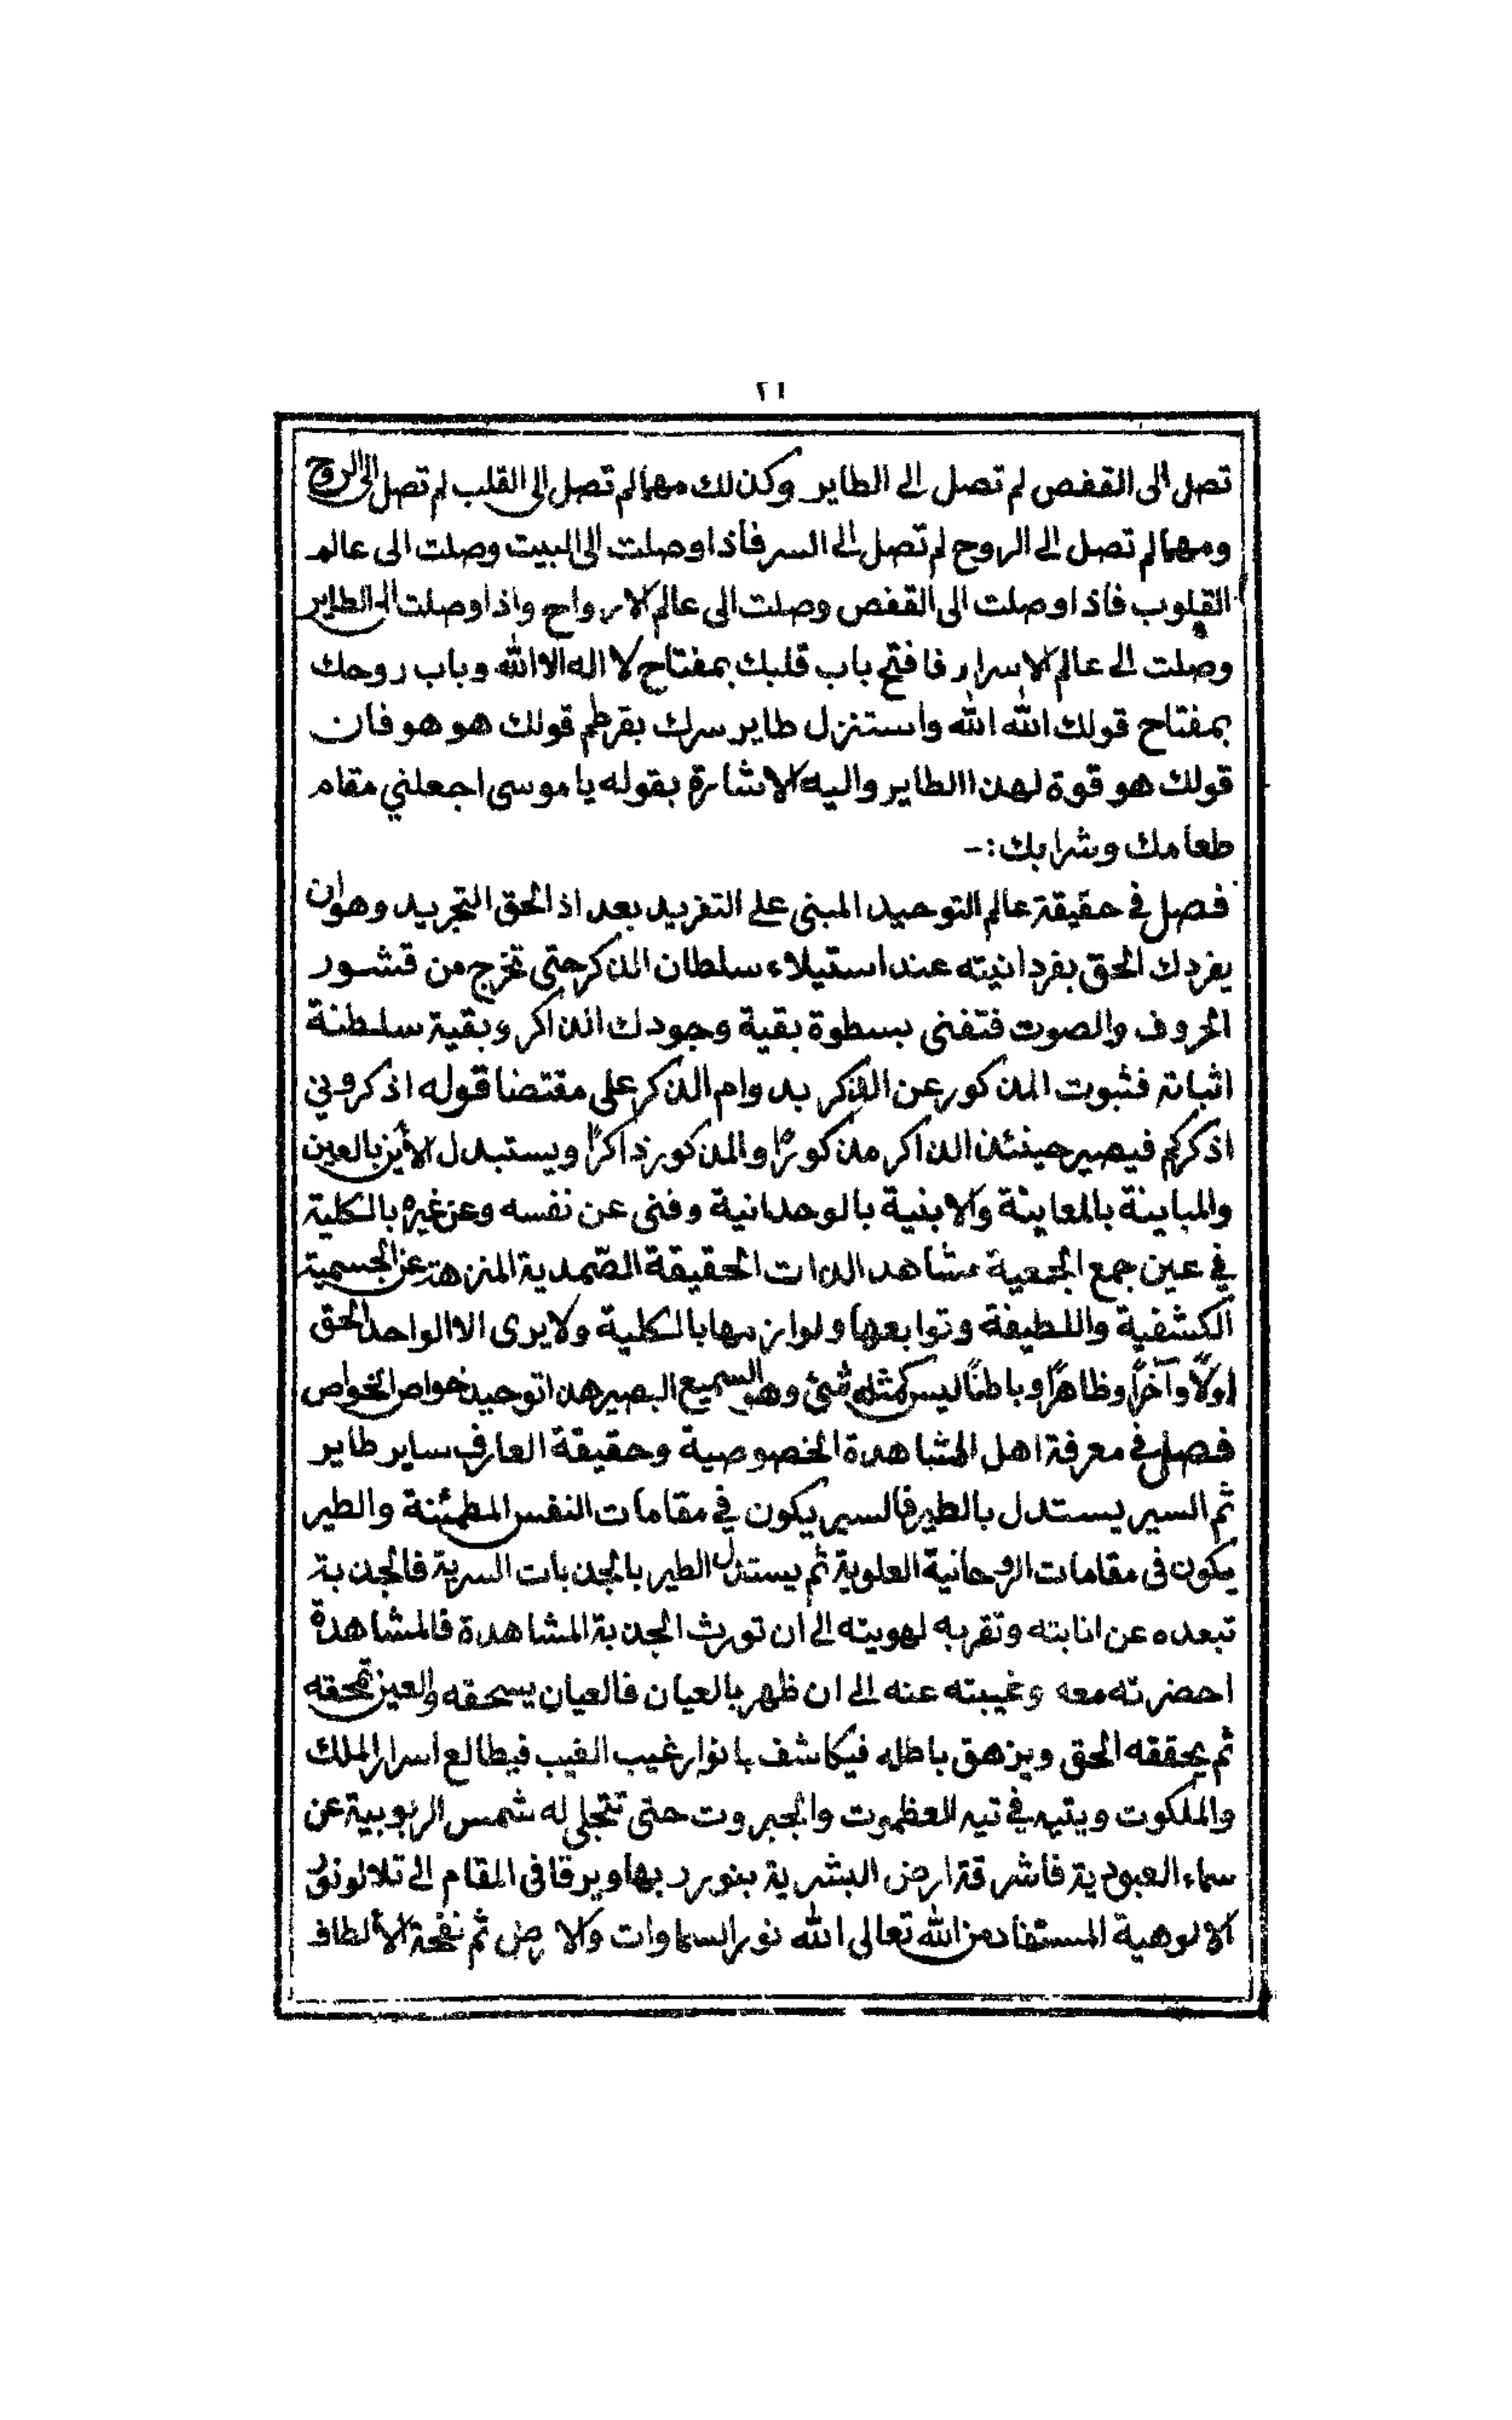 ٢١
تصل الى القفص لم تصل الى الطاير وكذلك مهما لم تصل الى القلب لم تصل الى الروح
ومهما لم تصل الى الروح لم تصل الى السر فأذا وصلت الى البيت وصلت الى عالم
القلوب فأذا وصلت الى القفص وصلت الى عالم الارواح واذا وصلت الى الطاير
وصلت الى عالم الاسرار فافتح باب قلبك بمفتاح لا اله الا الله وباب روحك
بمفتاح قولك الله الله واستنزل طاير سرك بقرطم قولك هو هو فان
قولك هو قوة لهذا الطاير واليه الاشارة بقوله يا موسى اجعلني مقام
طعامك وشرابك :-
فصل في حقيقة عالم التوحيد المبنى على التفريد بعد اذ الحق التجريد وهو ان
يفردك الحق بفردانيته عند استيلاء سلطان الذكر حتى تخرج من قشور
الحروف والصوت فتفنى بسطوة بقية وجودك الذاكر وبقية سلطنة
اثباته فثبوت المذكور عن الذكر بدوام الذكر على مقتضا قوله اذكروني
اذكركم فيصير حينئذ الذاكر مذكورًا والمذكور ذاكرًا ويستبدل الأين بالعين
والمباينة بالمعاينة والابنية بالوحدانية وفنى عن نفسه وعن غيره بالكلية
في عين جمع الجمعية مشاهد الذات الحقيقة الصّمدية المنزهة عن الجسمية
الكشفية واللطيفة وتوابعها ولوازمها بالكلية ولا يرى الا الواحد الحق
اولاً وآخراً وظاهراً وباطناً ليس كمثله شئ وهو السميع البصير هذا توحيد خواص الخواص
فصل في معرفة اهل المشاهدة الخصوصية وحقيقة العارف ساير طاير
ثم السير يستدل بالطير فالسير يكون في مقامات النفس المطمئنة والطير
يكون فى مقامات الروحانية العلوية ثم يستدل الطير بالجذبات السرية فالجذبة
تبعده عن انابته وتقربه لهويته الى ان تورث الجذبة المشاهدة فالمشاهدة
احضرته معه وغيبته عنه الى ان ظهر بالعيان فالعيان يسحقه والعين تمحقه
ثم يحققه الحق ويزهق باطله فيكاشف بانوار غيب الغيب فيطالع أسرار الملك
والملكوت ويتيه في تيه العظموت والجبروت حتى تتجلى له شمس الربوبية عن
سماء العبودية فأشرقة ارض البشرية بنور ربها ويرقا فى المقام الى تلالو نور
الالوهية المستفاد من الله تعالى الله نور السماوات والارض ثم نفحة الألطاف